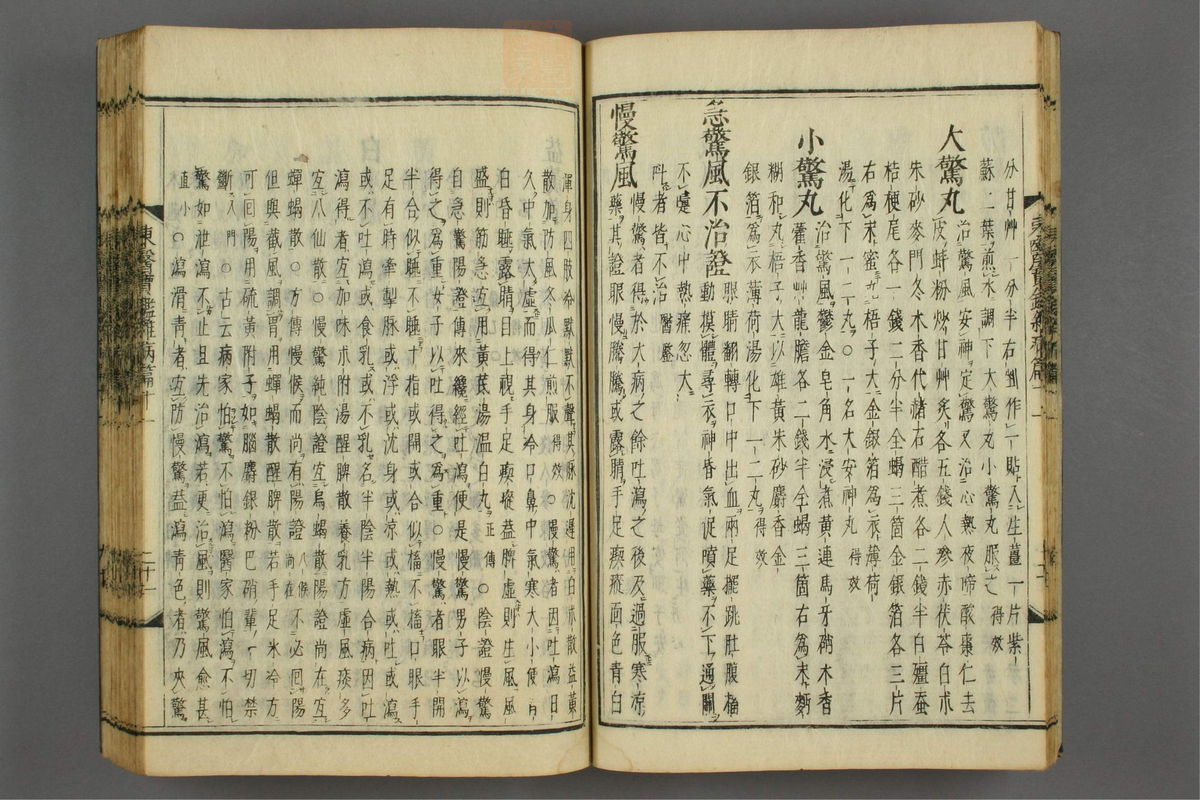 分甘艸一分半右剉作一貼入生薑一片紫
蘇二葉煎水調下大驚丸小驚丸服之 得效
大驚丸 治驚風安神定驚又治心熱夜啼酸棗仁去
皮蚌粉炒甘艸炙各五錢人參赤茯苓白朮
朱砂麥門冬木香代赭石醋煮各二錢半白殭蚕
桔梗尾各一錢二分半全蝎三箇金銀箔各三片
右爲末蜜丸梧子大金銀箔爲衣薄荷
湯化下一二丸○一名大安神丸 得效
小驚丸 治驚風鬱金皂角水浸煮黃連馬牙硝木香
藿香艸龍膽各二錢半全蝎三箇右爲末麪
糊和丸梧子大以雄黃朱砂麝香金
銀箔爲衣薄荷湯化下一二丸 得效
急驚風不治證 眼睛翻轉口中出血兩足擺跳肚腹搐
動摸體尋衣神昏氣促噴藥不下通關
不嚏心中熱痛忽大
呌者皆不治 醫鑒
慢驚風 慢驚者得於大病之餘吐瀉之後及過服寒凉
藥其證眼慢騰騰或露睛手足瘈瘲面色靑白
渾身四肢冷默默不聲其脉沈遲用白朮散益黃
散加防風冬瓜仁煎服 得效 ○慢驚者因吐瀉日
久中氣大虛而得其身冷口鼻中氣寒大小便
白昏睡露睛目上視手足瘈瘲益脾虛則生風風
盛則筋急宜用黃茋湯溫白丸 正傳 ○陰證慢驚
自急驚陽證傳來纔經吐瀉便是慢驚男子以瀉
得之爲重女子以吐得之爲重○慢驚者眼半開
半合似睡不睡十指或開或合似搐不搐口眼手
足有時牽掣脉或浮或沈身或凉或熱或吐或瀉
或不吐瀉或食乳或不乳名半陰半陽合病因吐
瀉得者宜加味朮附湯醒脾散養乳方虛風痰多
宜八仙散○慢驚純陰證宜烏蝎散陽證尚在宜
蟬蝎散○方傳慢候而尚有陽證 八候尚在 不必回陽
但與截風調胃用蟬蝎散醒脾散若手足氷冷方
可回陽用硫黃附子如腦麝銀粉巴硝輩一切禁
斷 入門 ○古云病家怕驚不怕瀉醫家怕瀉不怕
驚如泄瀉不止且先治瀉若更治風則驚風愈甚
直小 ○瀉滑靑者宜防慢驚益瀉靑色者乃夾驚
東醫寶鑑雜病篇十一
二十一